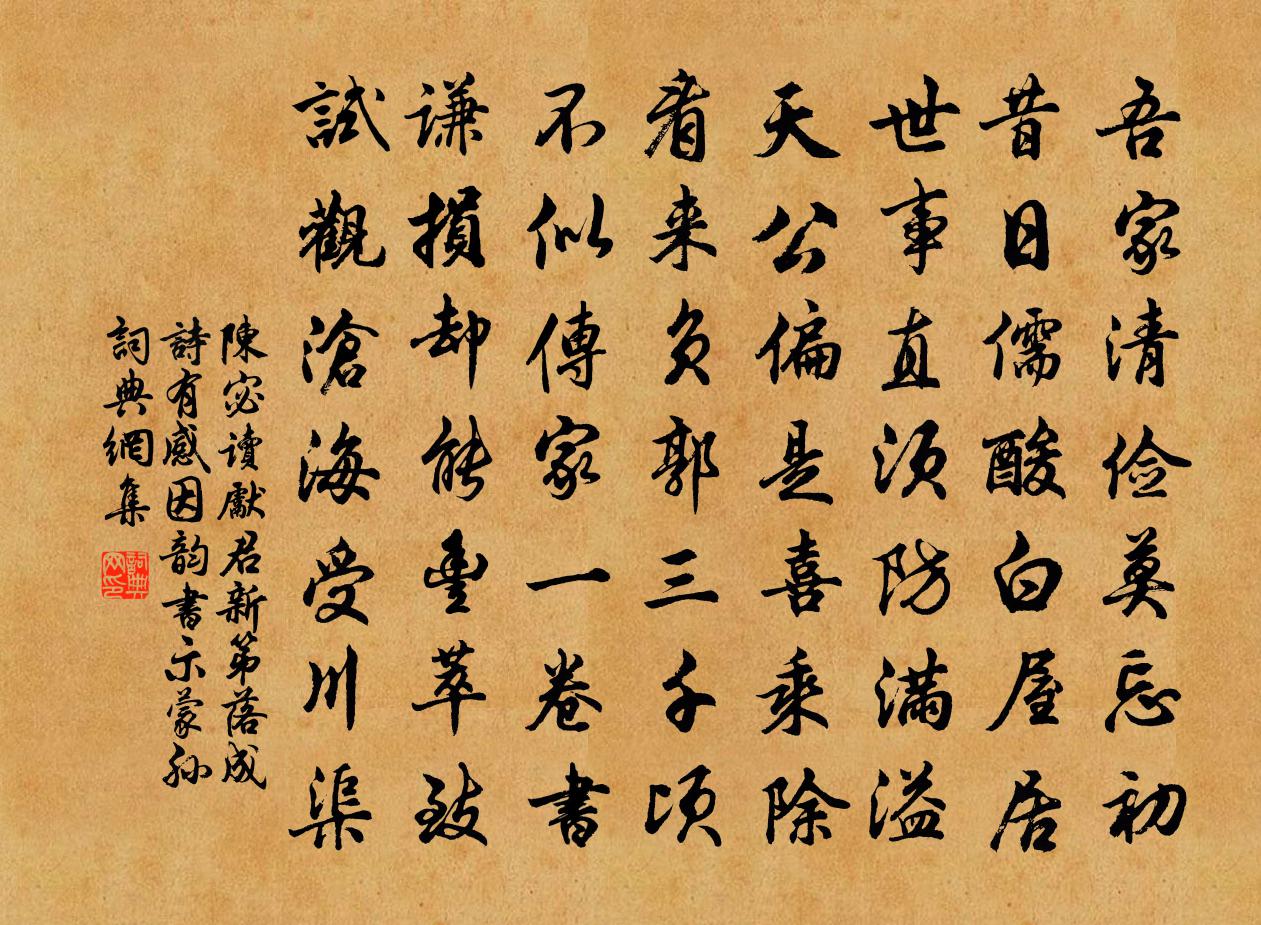 吾家清俭莫忘初
昔日儒酸白屋居
世事直须防满溢
天公偏是喜乘除
看来负郭三千顷
不似傳家一卷書
谦損却能豐萃致
試觀滄海受川渠
陳宓讀獻君新第落成
詩有感因韵書示蒙孙
詞典網集
詞典网印